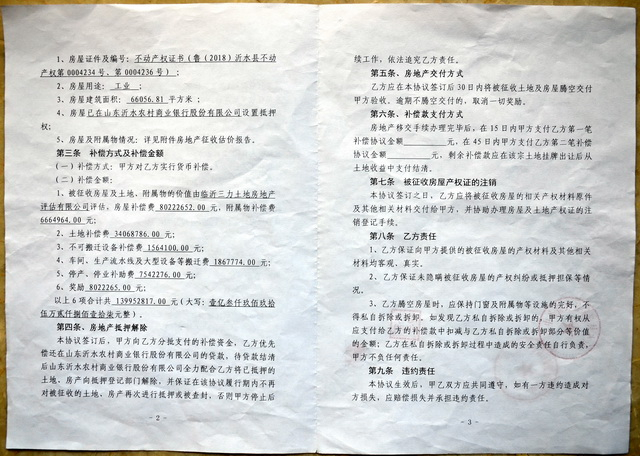 1、房屋证件及编号：不动产权证书（鲁（2018）沂水县不动
产权第0004234号、第0004236号）；
2、房屋用途：工业；
3、房屋建筑面积：66056.81平方米；
4、房屋已在山东沂水农村商业银行股份有限公司设置抵押
权；
5、房屋及附属物情况：详见附件房地产征收估价报告。
第三条 补偿方式及补偿金额
（一）补偿方式：甲方对乙方实行货币补偿。
（二）补偿金额：
1、被征收房屋及土地、附属物的价值由临沂三力土地房地产
评估有限公司评估。房屋补偿费80222652.00元，附属物补偿费
6664964.00元；
2、土地补偿费34068786.00元；
3、不可搬迁设备补偿费1564100.00元；
4、车间、生产流水线及大型设备等搬迁费1867774.00元；
5、停产、停业补助费7542276.00元；
6、奖励8022265.00元；
以上6项合计共139952817.00元（大写：壹亿叁仟玖佰玖拾
伍万贰仟捌佰壹拾柒元整）。
第四条、房地产抵押解除
本协议签订后，甲方向乙方分拨支付的补偿资金，乙方优先
偿还在山东沂水农村商业银行股份有限公司的贷款，待贷款结清
后山东沂水农村商业银行股份有限公司全力配合乙方将已抵押的
土地、房产向抵押登记部门解除，并保证在该协议履行期内不再
对被征收的土地、房产再次进行抵押或被查封，否则甲方停止后
- 2 -
续工作，依法追究乙方责任。
第五条、房地产交付方式
乙方应在本协议签订后30日内将被征收土地及房屋腾空交付
甲方验收。逾期不腾空交付的，取消一切奖励。
第六条、补偿款支付方式
房地产移交手续办理完毕后，在15日内甲方支付乙方第一笔
补偿协议金额 元，在45日内甲方支付乙方第二笔补偿
协议金额 元，剩余补偿款应在该宗土地挂牌出让后从
土地收益中支付结清。
第七条 被征收房屋产权证的注销
本协议签订之日，乙方应将被征收房屋的相关产权材料原件
及其他相关材料交付给甲方，并协助办理房屋及土地产权证的注
销登记手续。
第八条 乙方责任
1、乙方保证向甲方提供的被征收房屋的产权材料及其他相关
材料均客观、真实。
2、乙方保证未隐瞒被征收房屋的产权纠纷或抵押担保等情
况。
3、乙方腾空房屋时，应保持门窗及附属物等设施的完好，不
得私自拆除或拆卸。如发现乙方私自拆除或拆卸的，甲方有权从
应支付给乙方的补偿款中扣减与乙方私自拆除或拆卸部分等价值
的金额；乙方在私自拆除或拆卸过程中造成的安全责任自行负责，
甲方不负任何责任。
第九条 违约责任
本协议生效后，甲乙双方应共同遵守，如有一方违约造成对
方损失，应赔偿损失并承担违约责任。
- 3 -